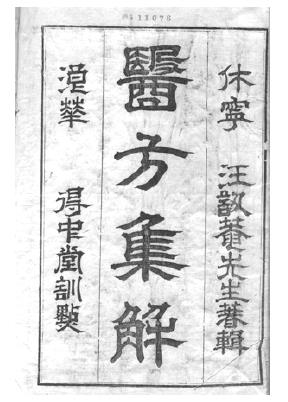 11076
休寧 汪訒菴先生著輯
醫方集解
浪華 得中堂訓點